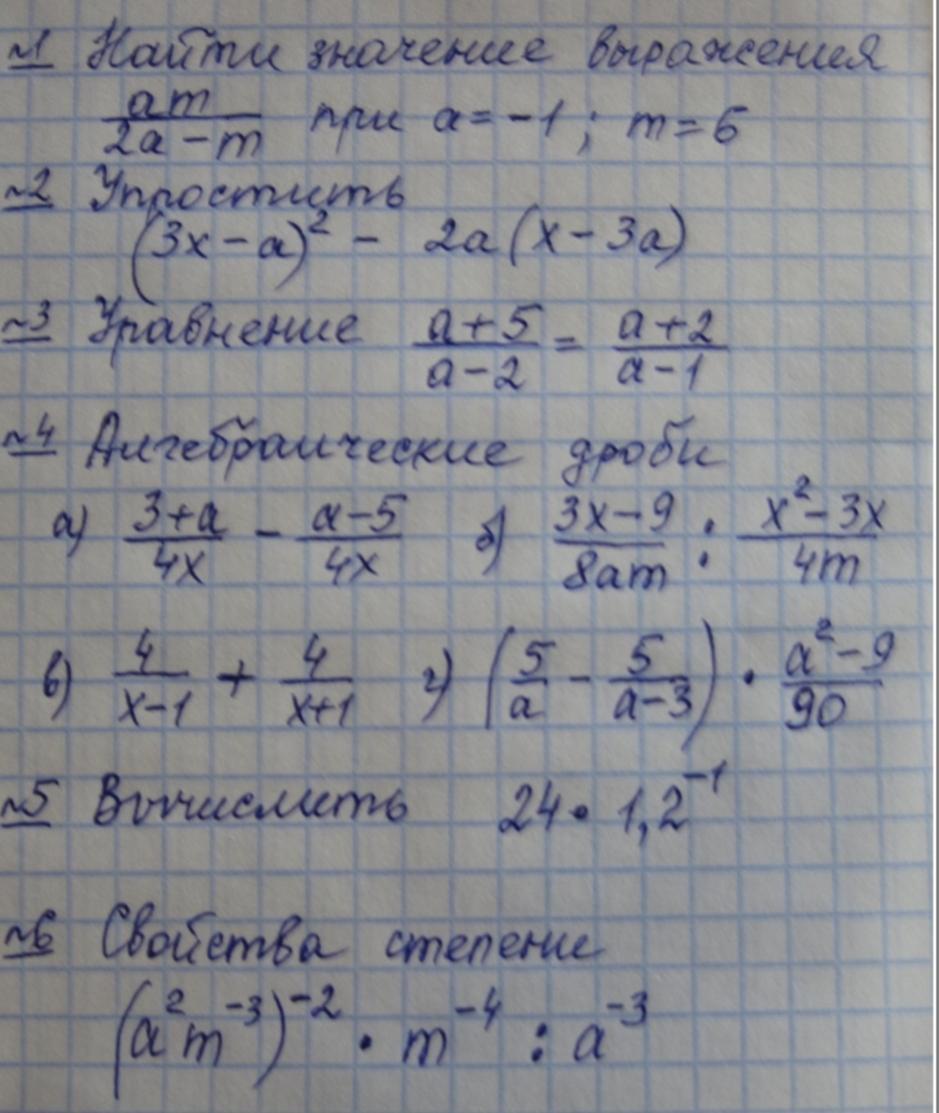 №1 Найти значение выражения
am/(2a-m) при a=-1; m=6
№2 Упростить
(3x-a)² - 2a(x-3a)
№3 Уравнение (a+5)/(a-2) = (a+2)/(a-1)
№4 Алгебраические дроби
а) (3+a)/(4x) - (a-5)/(4x) б) (3x-9)/(8am) : (x²-3x)/(4m)
в) 4/(x-1) + 4/(x+1) г) (5/a - 5/(a-3)) · (a²-9)/90
№5 Вычислить 24 · 1,2⁻¹
№6 Свойства степени
(a²m⁻³)⁻² · m⁻⁴ : a⁻³